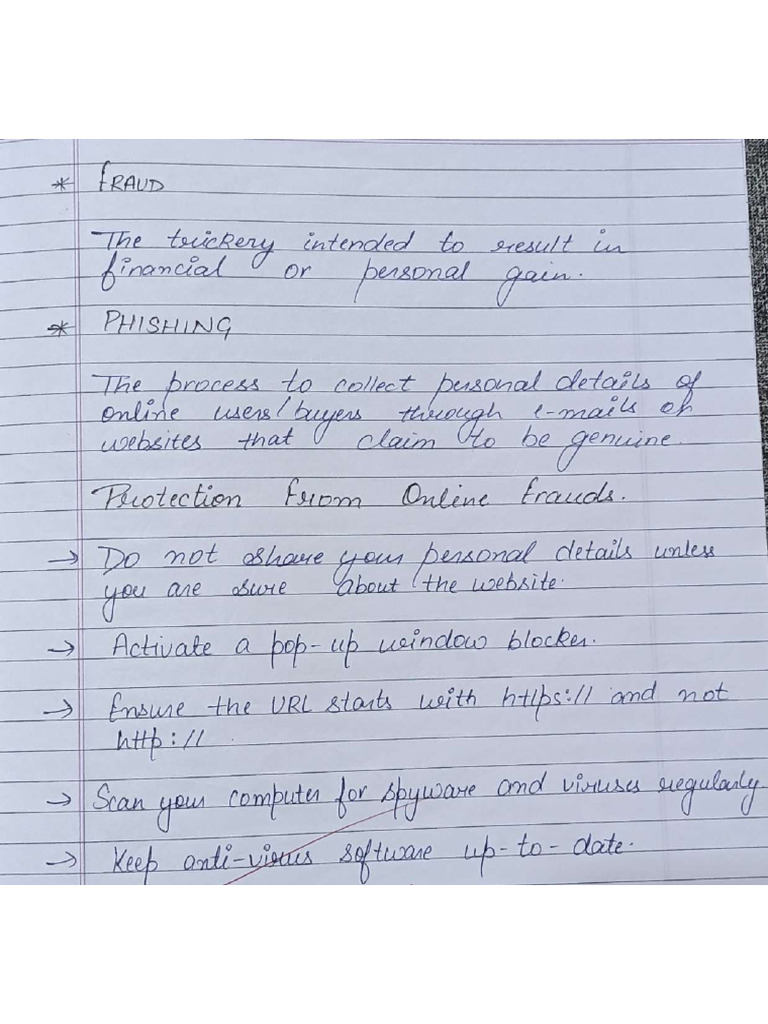 * FRAUD
The trickery intended to result in
financial or personal gain.
* PHISHING
The process to collect personal details of
online users/buyers through e-mails or
websites that claim to be genuine.
Protection from Online frauds.
→ Do not share your personal details unless
you are sure about the website.
→ Activate a pop-up window blocker.
→ Ensure the URL starts with https:// and not
http://
→ Scan your computer for spyware and viruses regularly
→ Keep anti-virus software up-to-date.